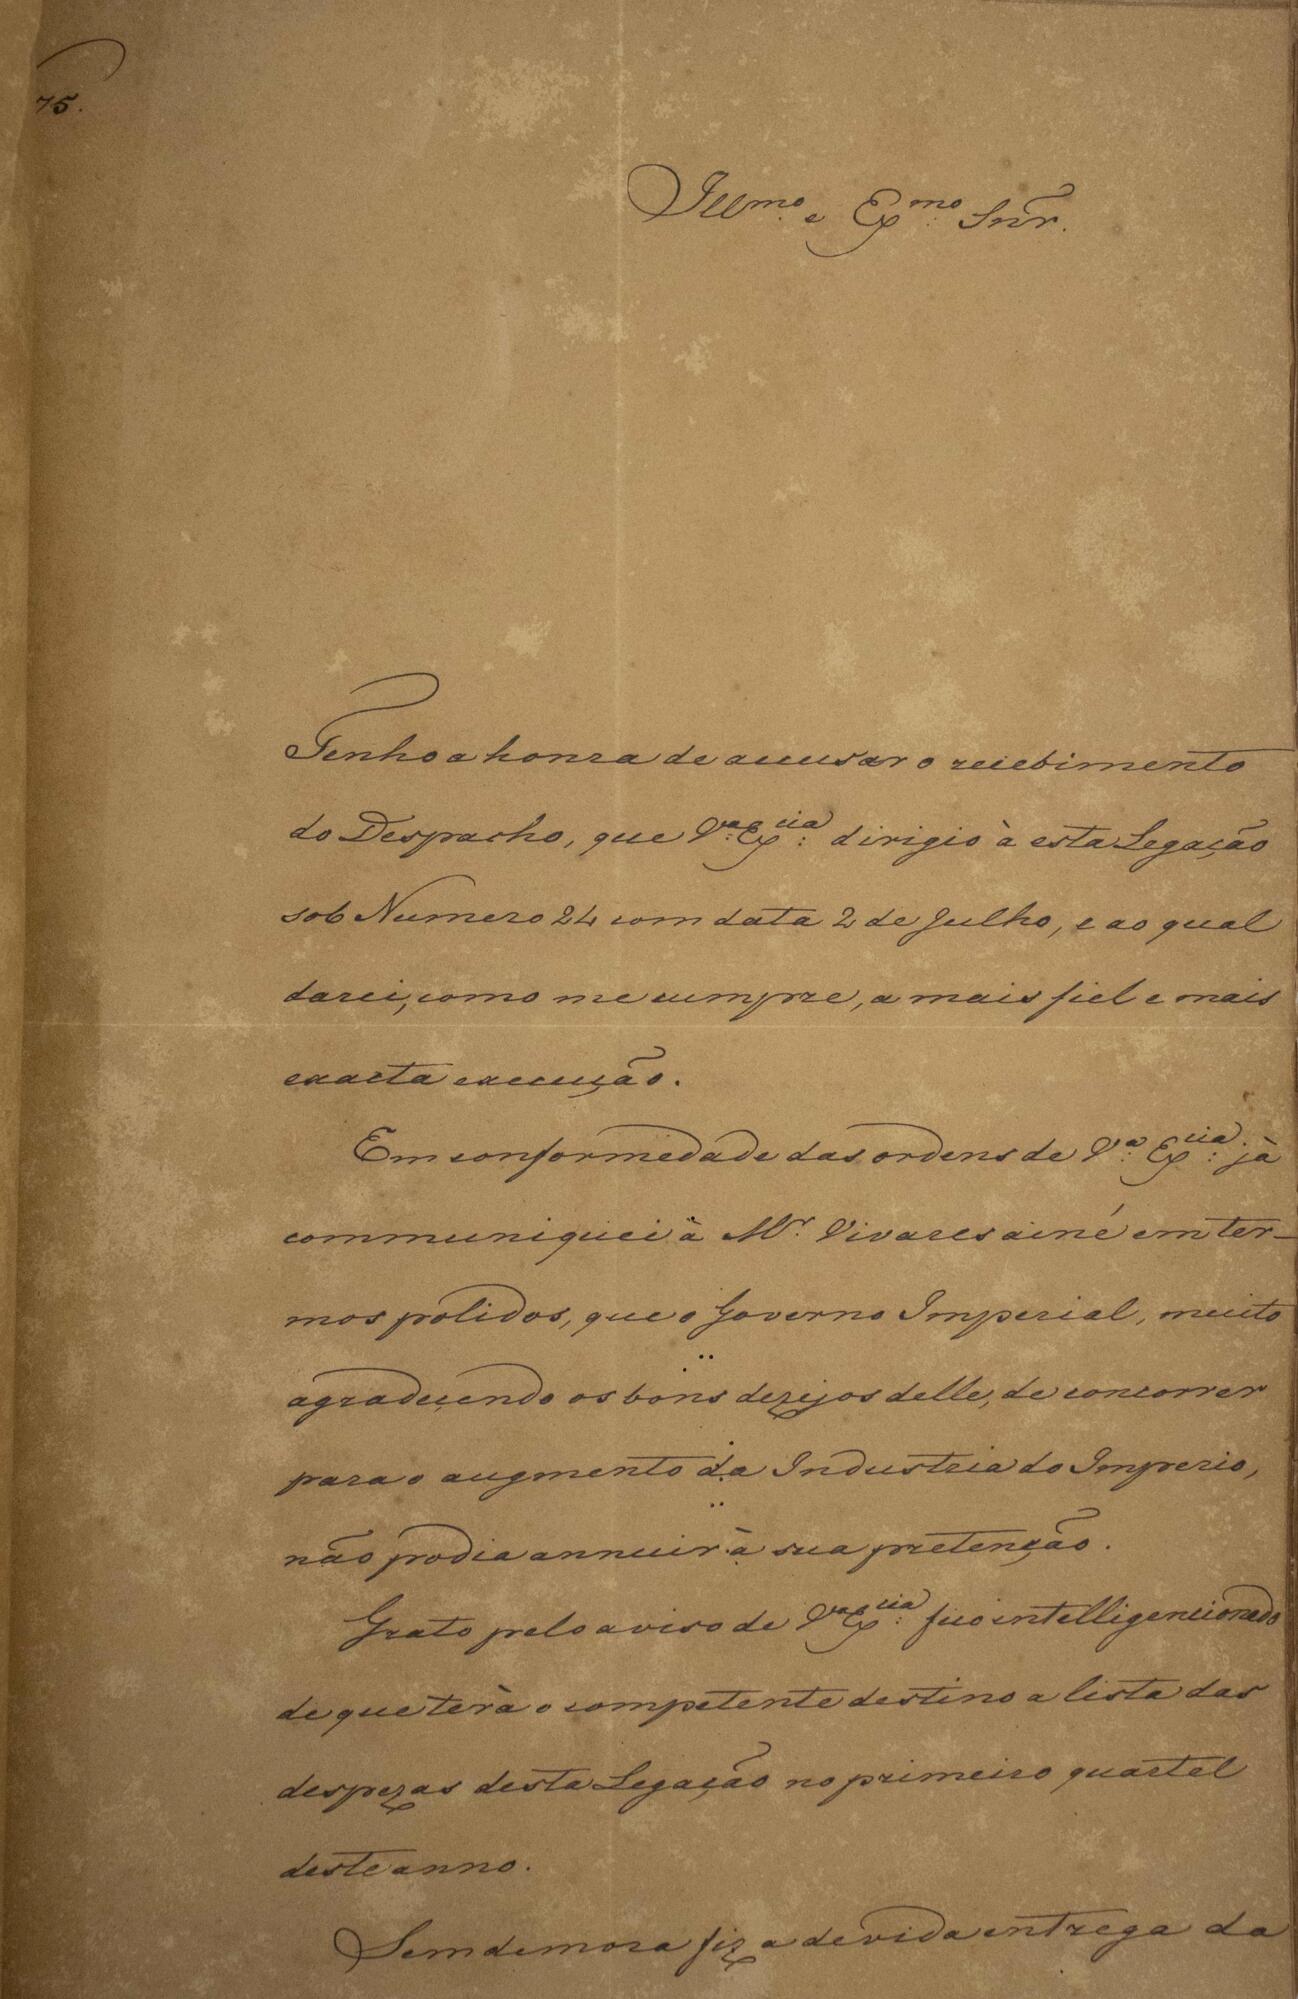 75.
Illmo. e Exmo. Snr.
Tenho a honra de accusar o recebimento
do Despacho, que Va. Excia. dirigio à esta Legação
sob Numero 24 com data 2 de Julho, e ao qual
darei, como me cumpre, a mais fiel e mais
exacta execução.
Em conformedade das ordens de Va. Excia. jà
communiquei à Mr. Vivares ainé em ter-
mos polidos, que o Governo Imperial, muito
agradeçendo os bons dezejos delle, de concorrer
para o augmento da Industria do Imperio,
não podia annuir à sua pretenção.
Grato pelo aviso de Va. Excia. fico intelligencionado
de que terà o competente destino a lista das
despezas desta Legação no primeiro quartel
deste anno.
Sem demora fiz a devida entrega da